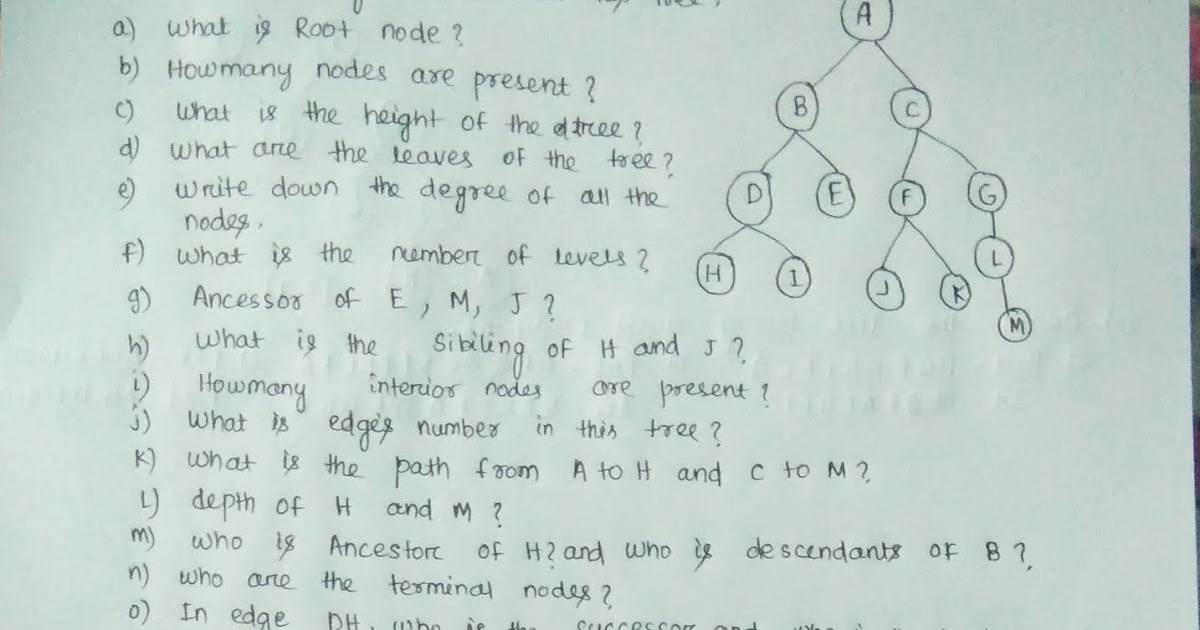 a) What is Root node ?
A
b) Howmany nodes are present ?
B C
c) What is the height of the tree ?
d) What are the leaves of the tree ?
D E F G
e) Write down the degree of all the
nodes.
f) What is the number of levels ?
H I J K L
g) Ancessor of E, M, J ?
M
h) What is the Sibiling of H and J ?
i) Howmany interior nodes are present ?
j) What is edge's number in this tree ?
k) What is the path from A to H and C to M ?
L) depth of H and M ?
m) Who is Ancestore of H ? and who is descendants of B ?
n) who are the terminal nodes ?
o) In edge DH, who is the successor and who